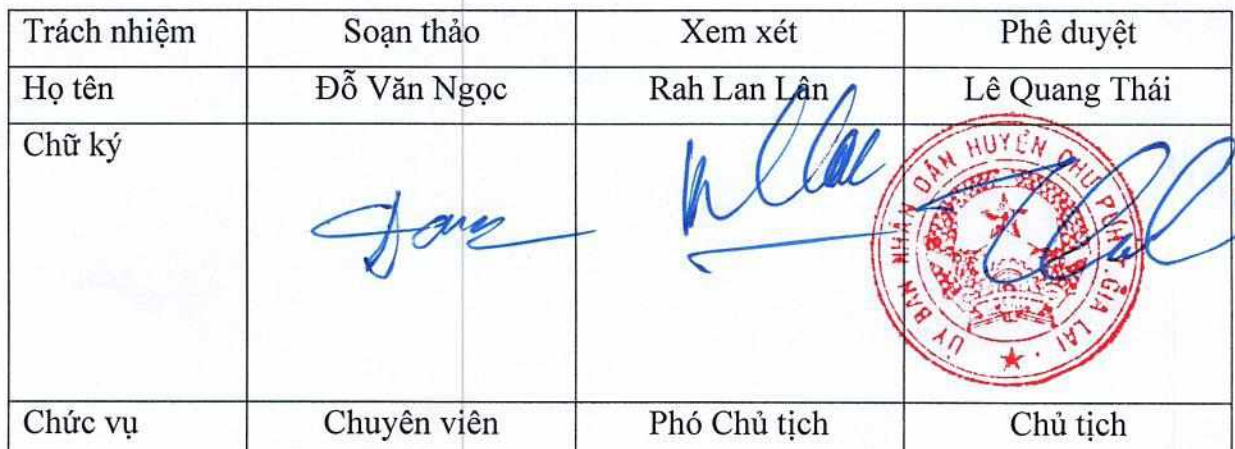 Trách nhiệm Soạn thảo Xem xét Phê duyệt
Họ tên Đỗ Văn Ngọc Rah Lan Lân Lê Quang Thái
Chữ ký
ỦY BAN NHÂN DÂN HUYỆN CHƯ PƯH T. GIA LAI
Chức vụ Chuyên viên Phó Chủ tịch Chủ tịch